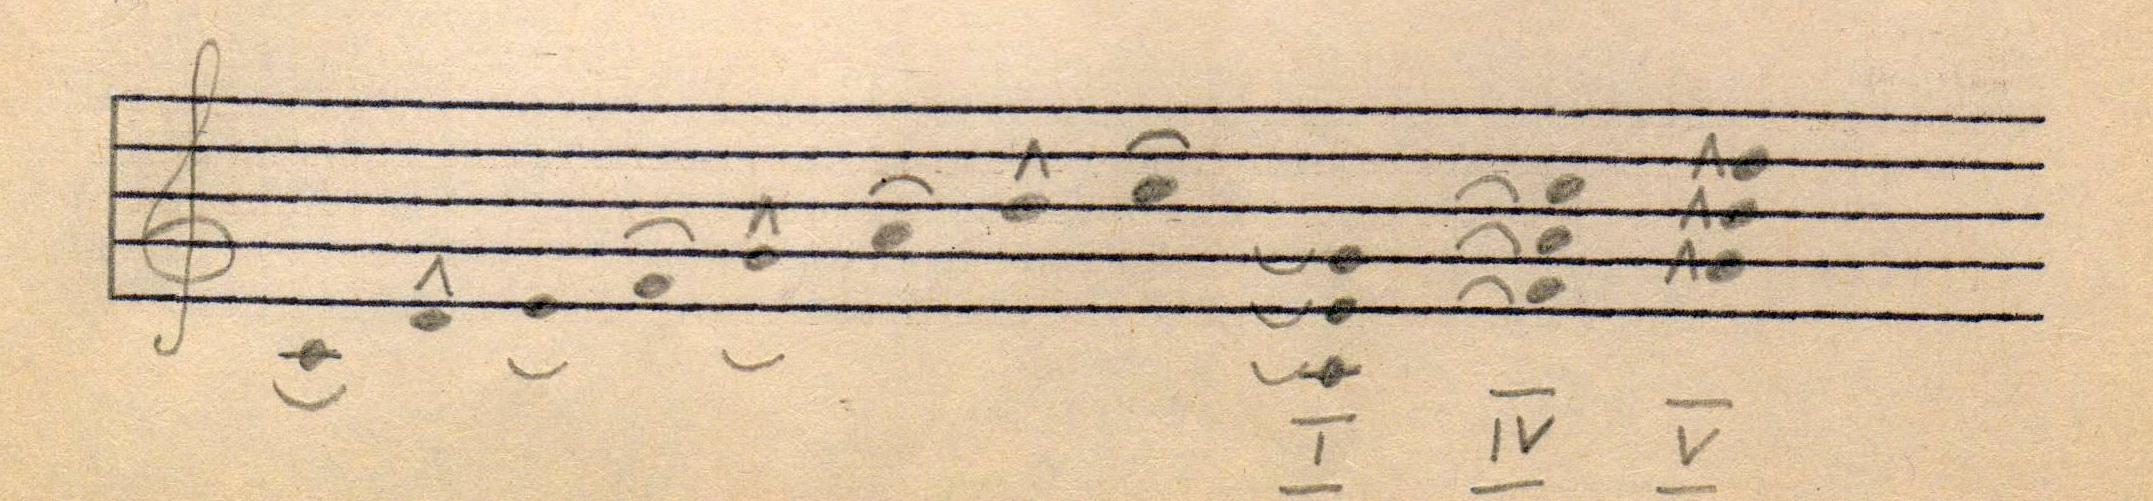 I IV V